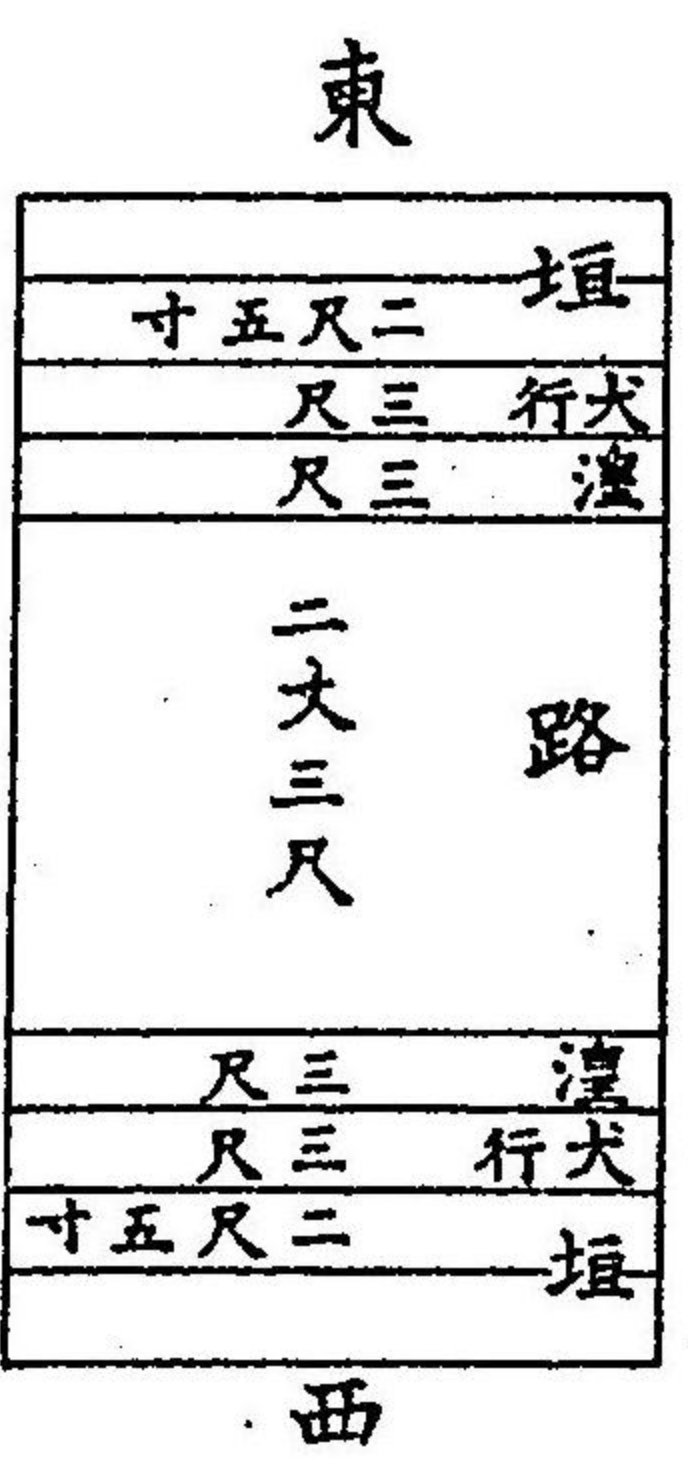 東
垣
二尺五寸
犬行 三尺
湟 三尺
路
二丈三尺
湟 三尺
犬行 三尺
二尺五寸
垣
西